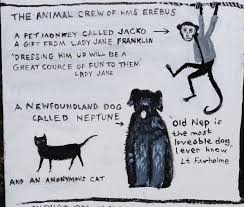 THE ANIMAL CREW OF HMS EREBUS
A PET MONKEY CALLED JACKO
A GIFT FROM LADY JANE FRANKLIN
'DRESSING HIM UP WILL BE A
GREAT SOURCE OF FUN TO THEM'
LADY JANE
A NEWFOUNDLAND DOG
CALLED NEPTUNE
'Old Nep is
the most
loveable dog
I ever knew'
Lt Fairholme
AND AN ANONYMOUS CAT